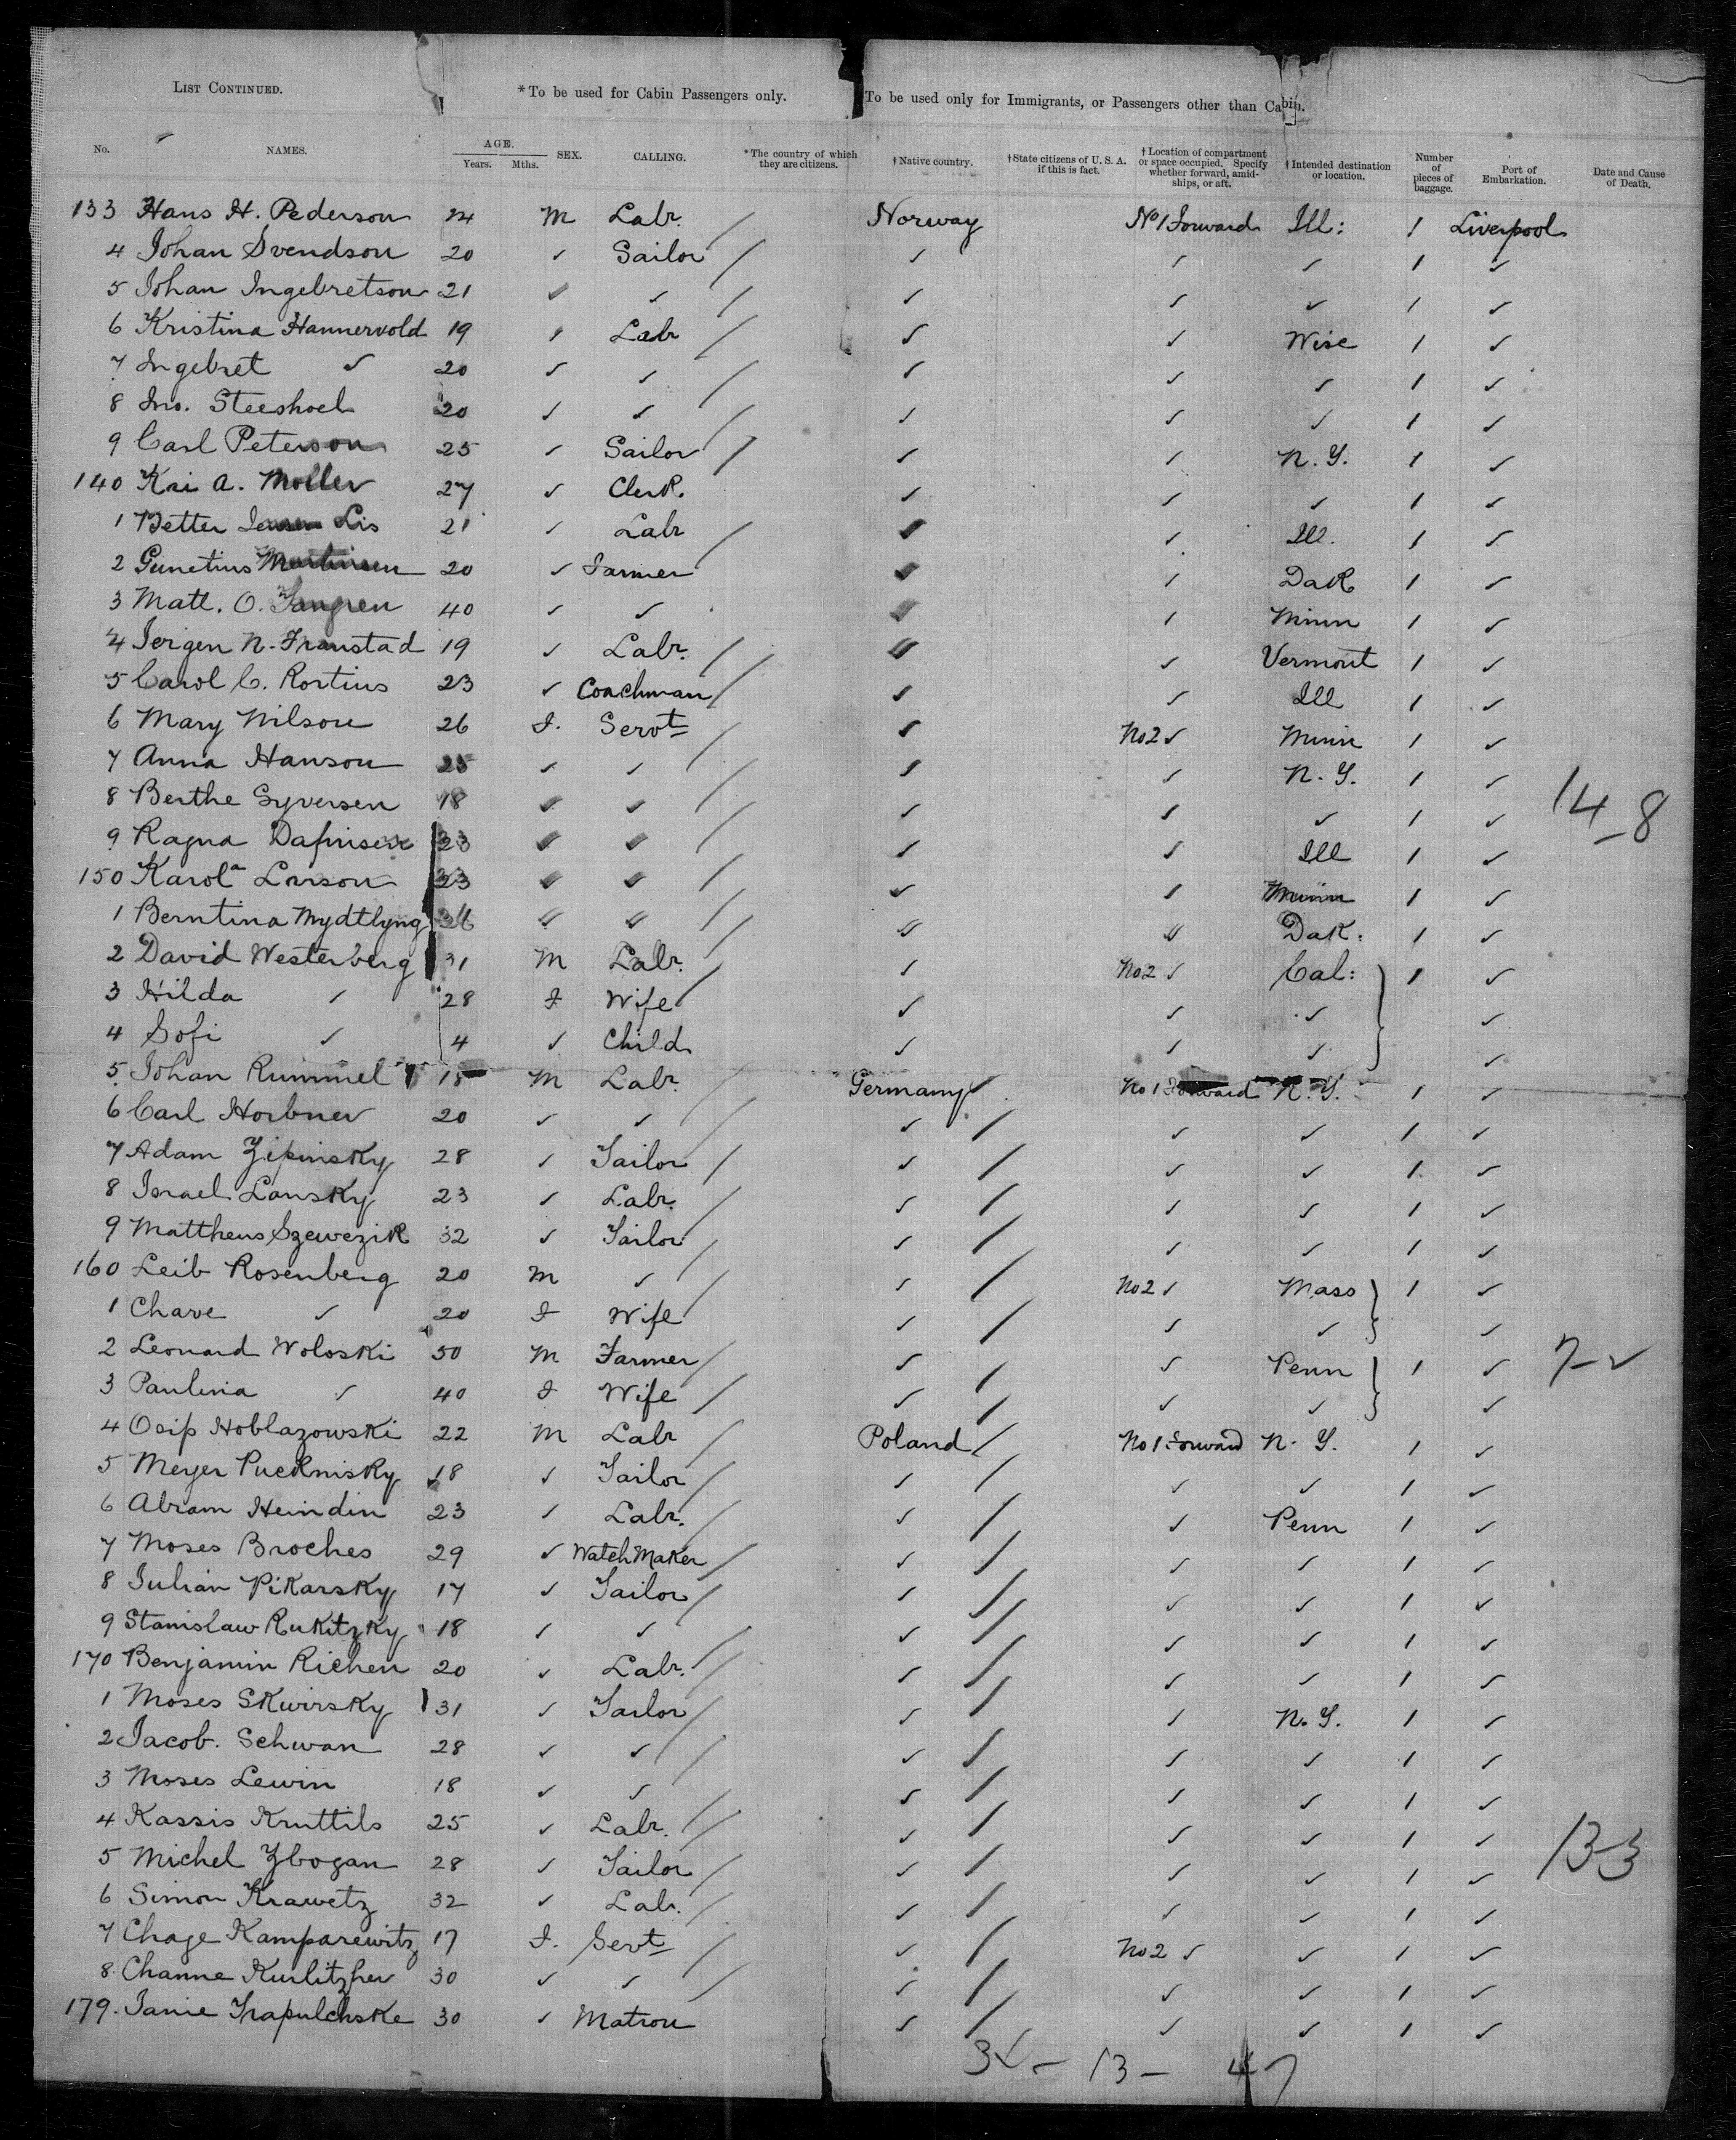 LIST CONTINUED. *To be used for Cabin Passengers only. To be used only for Immigrants, or Passengers other than Cabin.
No. NAMES. AGE. Years. Mths. SEX. CALLING. *The country of which they are citizens. †Native country. †State citizens of U. S. A. if this is fact. †Location of compartment or space occupied. Specify whether forward, amidships, or aft. †Intended destination or location. Number of pieces of baggage. Port of Embarkation. Date and Cause of Death.
133 Hans H. Pederson 24 M Labr. / Norway No 1 Forward Ill: 1 Liverpool
4 Johan Svendson 20 ✓ Sailor / ✓ ✓ ✓ 1 ✓
5 Johan Ingebretson 21 ✓ ✓ / ✓ ✓ ✓ 1 ✓
6 Kristina Hannervold 19 ✓ Labr / ✓ ✓ Wisc 1 ✓
7 Ingebret ✓ 20 ✓ ✓ / ✓ ✓ ✓ 1 ✓
8 Jno. Steeshoel 20 ✓ ✓ / ✓ ✓ ✓ 1 ✓
9 Carl Peterson 25 ✓ Sailor / ✓ ✓ N. Y. 1 ✓
140 Kri A. Moller 27 ✓ Clerk. ✓ ✓ ✓ 1 ✓
1 Petter Lis 21 ✓ Labr / ✓ ✓ Ill. 1 ✓
2 Gunetius Martinsen 20 ✓ Farmer ✓ ✓ Dak 1 ✓
3 Matt. O. 40 ✓ ✓ ✓ ✓ Minn 1 ✓
4 Jergen N. Franstad 19 ✓ Labr. / ✓ ✓ Vermont 1 ✓
5 Carol C. Rortius 23 ✓ Coachman / ✓ ✓ Ill 1 ✓
6 Mary Nilson 26 F. Servt / ✓ No 2 ✓ Minn 1 ✓
7 Anna Hanson 25 ✓ ✓ / ✓ ✓ N. Y. 1 ✓
8 Berthe Syversen 18 ✓ ✓ / ✓ ✓ ✓ 1 ✓ 14-8
9 Ragna 23 ✓ ✓ / ✓ ✓ Ill 1 ✓
150 Karola Larson 23 ✓ ✓ / ✓ ✓ Minn 1 ✓
1 Berntina Mydtlyng 36 ✓ ✓ / ✓ ✓ Dak: 1 ✓
2 David Westerberg 31 M Labr. / ✓ No 2 ✓ Cal: 1 ✓
3 Hilda ✓ 28 F Wife ✓ ✓ ✓ ✓
4 Sofi ✓ 4 ✓ Child ✓ ✓ ✓ ✓
5 Johan Rummel 18 M Labr. / Germany / No 1 Forward N. Y. 1 ✓
6 Carl Horbner 20 ✓ ✓ / ✓ / ✓ ✓ 1 ✓
7 Adam Zipinsky 28 ✓ Tailor / ✓ / ✓ ✓ 1 ✓
8 Israel Lansky 23 ✓ Labr. / ✓ / ✓ ✓ 1 ✓
9 Mattheus Szewezik 32 ✓ Tailor / ✓ / ✓ ✓ 1 ✓
160 Leib Rosenberg 20 M ✓ / ✓ / No 2 ✓ Mass 1 ✓
1 Chave ✓ 20 F Wife ✓ / ✓ ✓ ✓
2 Leonard Woloski 50 M Farmer / ✓ / ✓ Penn 1 ✓ 7-✓
3 Paulina ✓ 40 F Wife / ✓ / ✓ ✓ ✓
4 Osip Hoblazowski 22 M Labr / Poland / No 1 Forward N. Y. 1 ✓
5 Meyer Pucknisky 18 ✓ Tailor / ✓ / ✓ ✓ 1 ✓
6 Abram Heindin 23 ✓ Labr. / ✓ / ✓ Penn 1 ✓
7 Moses Broches 29 ✓ Watch Maker / ✓ / ✓ ✓ 1 ✓
8 Julian Pikarsky 17 ✓ Tailor / ✓ / ✓ ✓ 1 ✓
9 Stanislaw Rukitzky 18 ✓ ✓ / ✓ / ✓ ✓ 1 ✓
170 Benjamin Richen 20 ✓ Labr. / ✓ / ✓ ✓ 1 ✓
1 Moses Skwirsky 31 ✓ Tailor / ✓ / ✓ N. Y. 1 ✓
2 Jacob. Schwan 28 ✓ ✓ / ✓ / ✓ ✓ 1 ✓
3 Moses Lewin 18 ✓ ✓ ✓ / ✓ ✓ 1 ✓
4 Kassis Kruttils 25 ✓ Labr. / ✓ / ✓ ✓ 1 ✓ 13-3
5 Michel Zbogan 28 ✓ Tailor / ✓ / ✓ ✓ 1 ✓
6 Simon Krawetz 32 ✓ Labr. / ✓ / ✓ ✓ 1 ✓
7 Chage Kamparewitz 17 F. Servt / ✓ / No 2 ✓ ✓ 1 ✓
8 Channe Kurlitzher 30 ✓ ✓ / ✓ / ✓ ✓ 1 ✓
179. Janie Trapulchske 30 ✓ Matron ✓ / ✓ ✓ 1 ✓
13 - 47